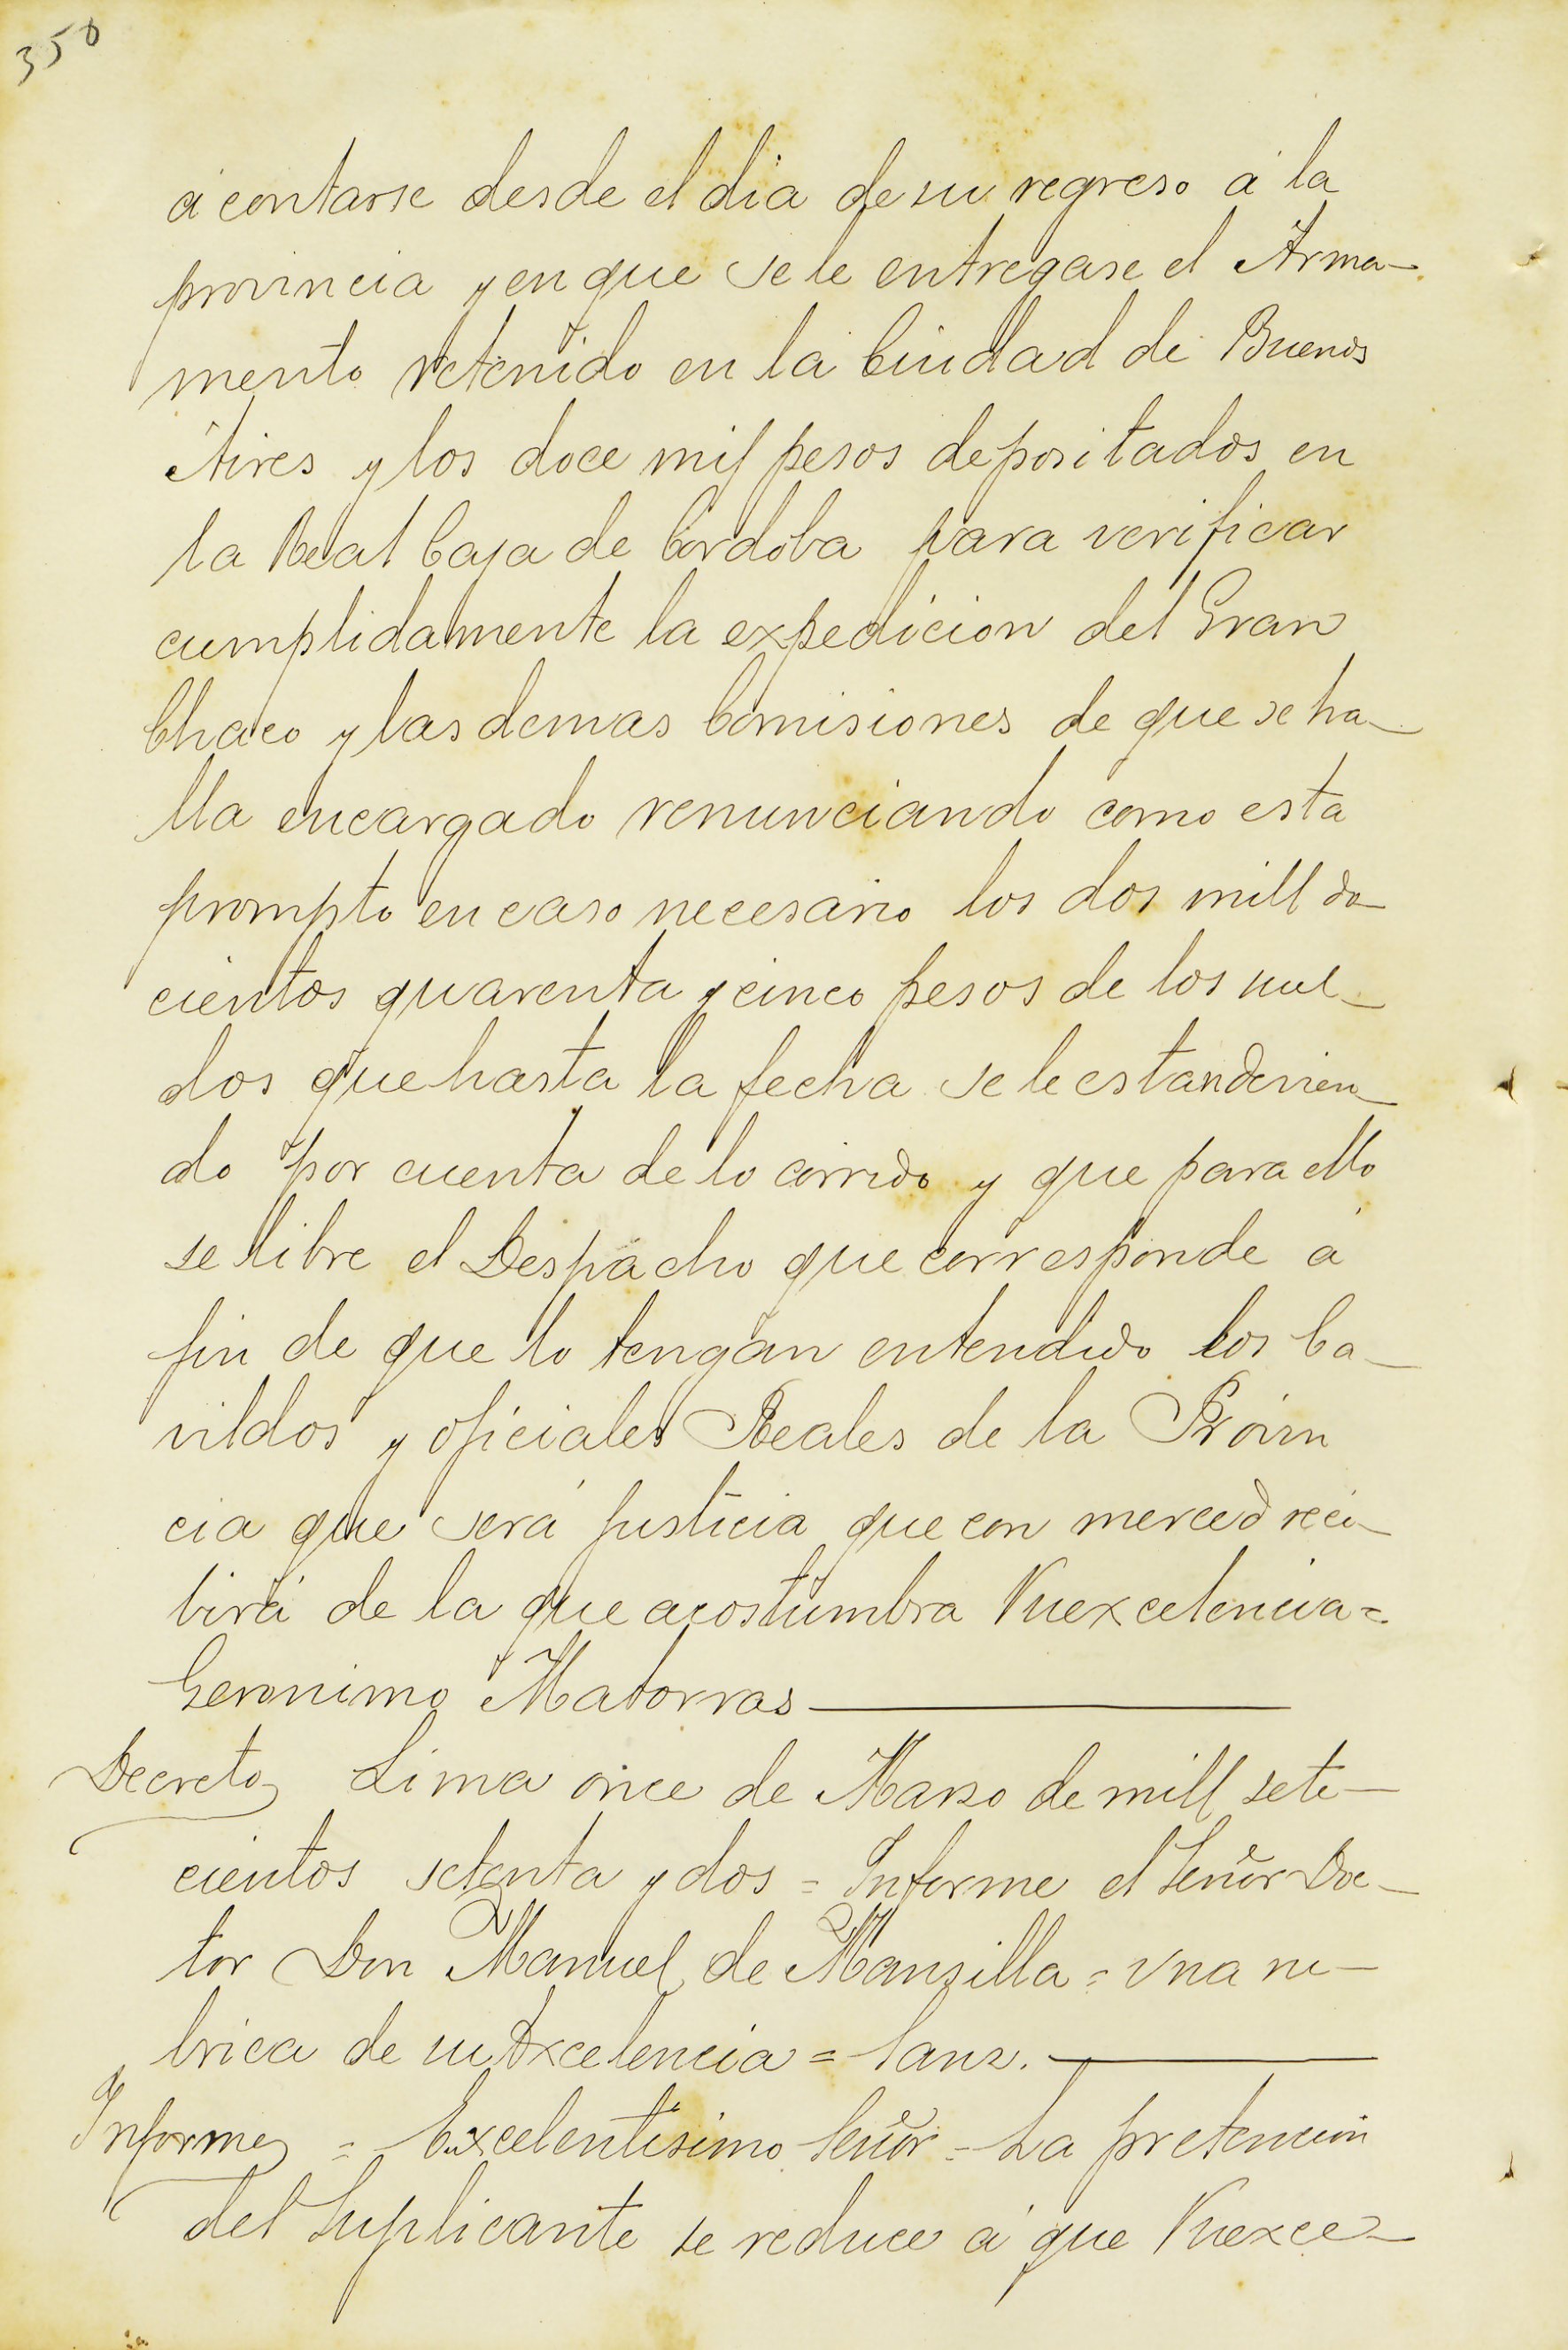 350
á contarse desde el dia de su regreso á la
provincia y en que se le entregase el Arma-
mento retenido en la Ciudad de Buenos
Aires y los doce mil pesos depositados en
la Real Caja de Cordoba para verificar
cumplidamente la expedicion del Gran
Chaco y las demas Comisiones de que se ha-
lla encargado renunciando como esta
prompto en caso necesario los dos mill do-
cientos quarenta y cinco pesos de los suel-
dos que hasta la fecha se le estan devien-
do por cuenta de lo corrido y que para ello
se libre el Despacho que corresponde á
fin de que lo tengan entendido los Ca-
vildos y oficiales Reales de la Provin
cia que será justicia que con merced reci-
birá de la que acostumbra Vuexcelencia=
Geronimo Matorras
Decreto Lima once de Marso de mill sete-
cientos setenta y dos = Informe el Señor Doc-
tor Don Manuel de Mansilla = vna ru-
brica de su Excelencia = Sanz.
Informe = Excelentisimo Señor = La pretencion
del Suplicante se reduce á que Vuexce-